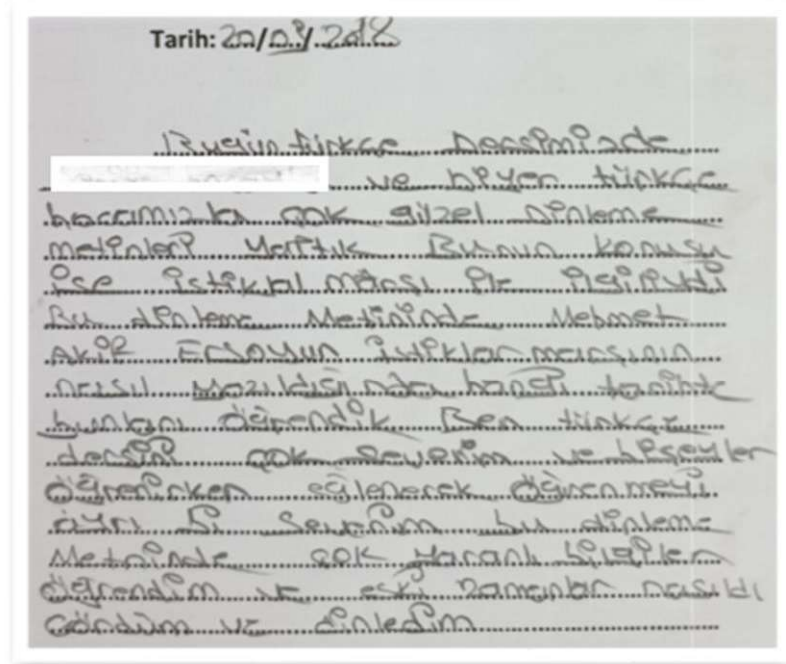 Tarih: 20/03/2018
Bugün türkçe Dersimizde
ve türkçe
hocamızla çok güzel Dinleme
metinleri Yaptık Bunun konusu
ise istiklal marşı ile ilgiliydi
Bu dinleme Metininde Mehmet
Akif Ersoyun istiklal marşının
nasıl yazıldığında hangi tarihte
bunları öğrendik Ben türkçe
dersini çok severim ve bişeyler
öğrenirken eğlenerek öğrenmeyi
ayrı bi severim bu dinleme
Metninde çok yararlı bilgiler
öğrendim ve eski zamanlar nasıldı
Gördüm ve dinledim